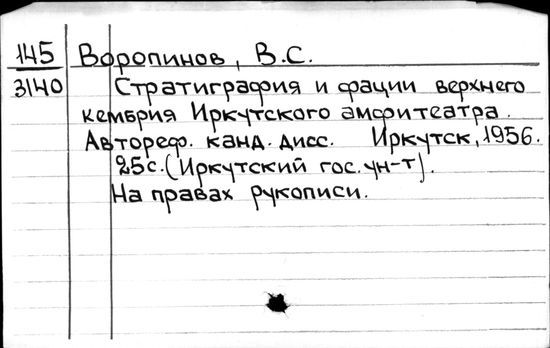 145 Воропинов, В.С.
3140 Стратиграфия и фации верхнего
кембрия Иркутского амфитеатра.
Автореф. канд. дисс. Иркутск, 1956.
25с. (Иркутский гос. ун-т).
На правах рукописи.